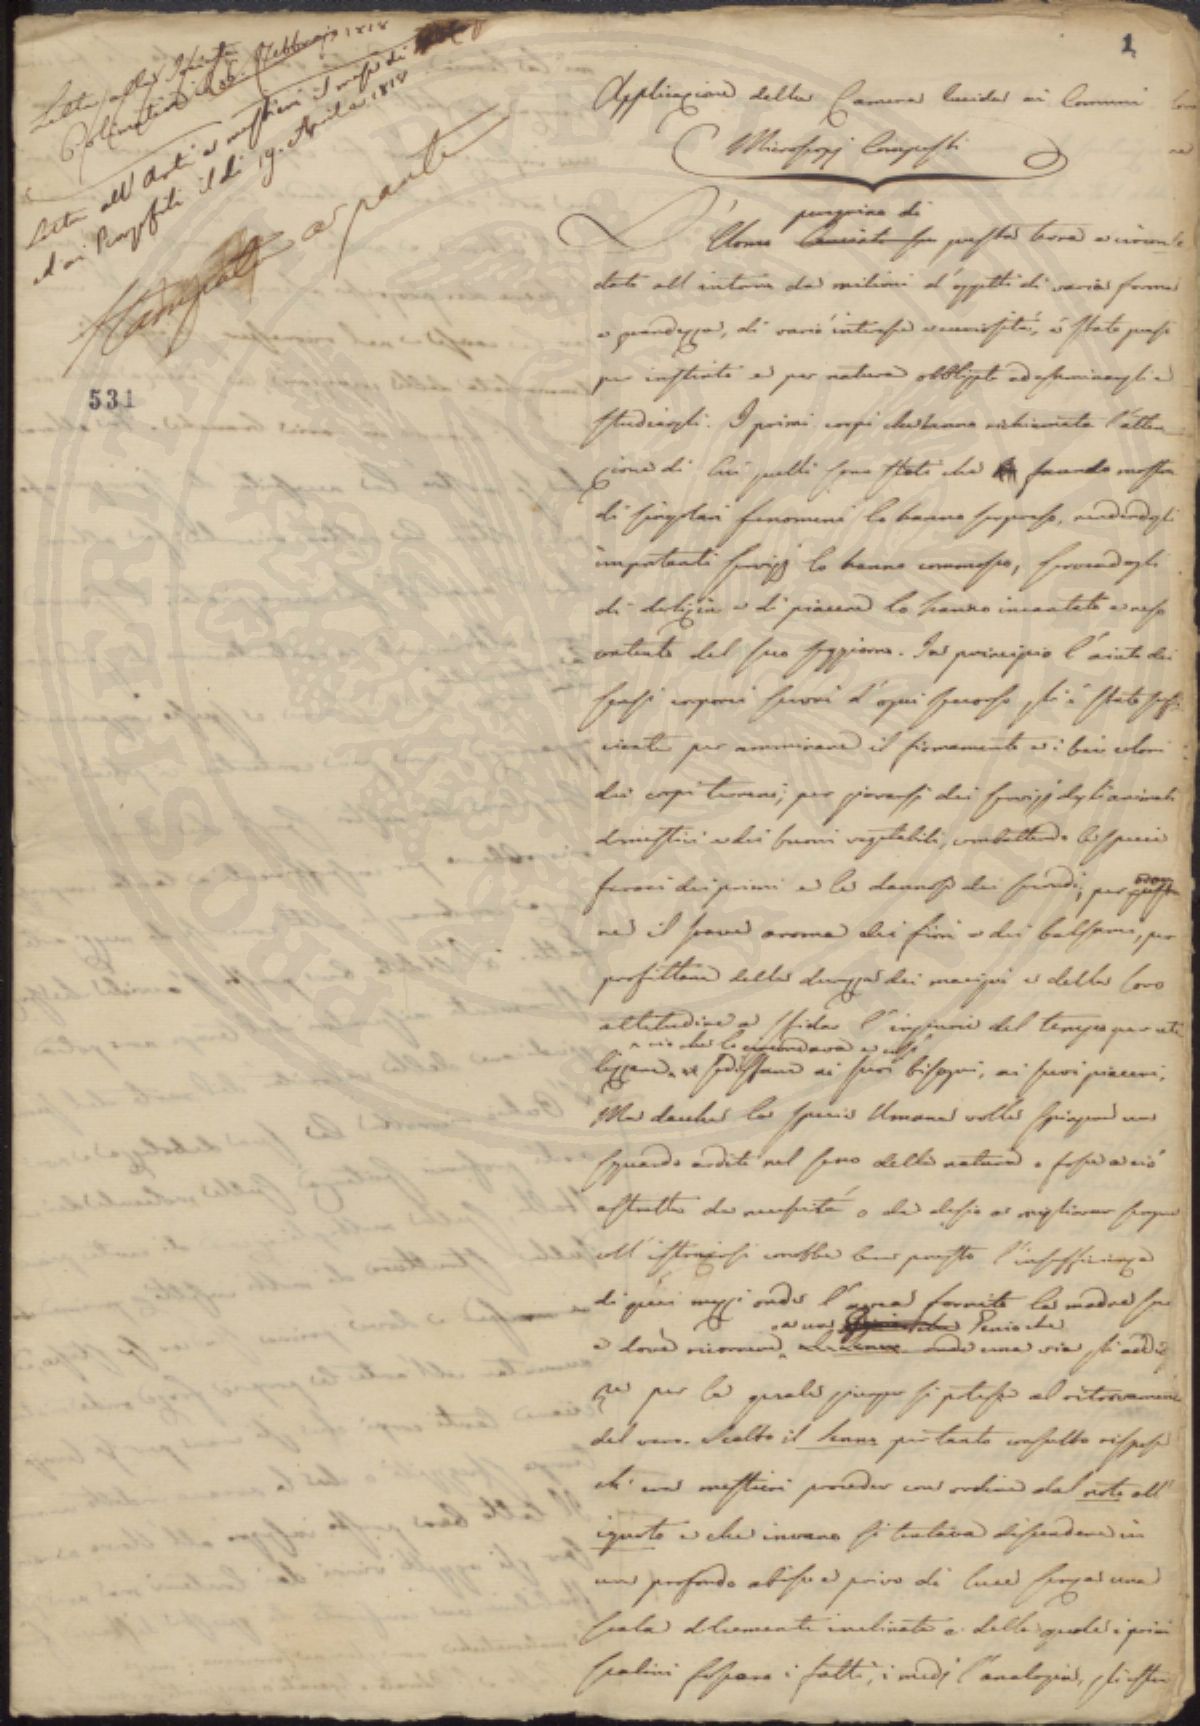 1
Letta alla Società
Colombaria 26. Febbraio 1818
Letta all'Arti e mestieri il mese di
ed ai Georgofili il dì 19. Aprile 1818
Stampata a parte
531
Applicazione della Camera lucida ai Comuni
Microscopj Composti
peregrino di
L'Uomo questa terra e circon
dato all'intorno da milioni d'oggetti di varia forma
e grandezza, di vario interesse e curiosità, è stato
per instinto e per natura obbligato ad esaminargli e
studiargli. I primi corpi che hanno richiamata l'atten
zione di lui quelli sono stati che facendo mostra
di singolari fenomeni lo hanno sorpreso, rendendogli
importanti servizj lo hanno commosso, servendogli
di delizia e di piacere lo hanno incantato e reso
contento del suo soggiorno. In principio l'aiuto dei
sensi corporei fuori d'ogni soccorso gli è stato suffi
ciente per ammirare il firmamento e i bei colori
dei corpi terreni; per giovarsi dei servizj degli animali
domestici e dei buoni vegetabili, combattendo le specie
feroci dei primi e le dannose dei secondi; per
re il soave aroma dei fiori e dei balsami, per
profittare della durezza dei macigni e della loro
attitudine a sfidar l'ingiurie del tempo per uti
e ciò che lo circondava e
lizzare sodisfare ai suoi bisogni, ai suoi piaceri.
Ma dacchè la specie Umana volle spingere uno
sguardo ardito nel seno della natura o fosse a ciò
astretta da necessità o da desio di migliorar sempre
coll'istruirsi conobbe ben presto l'insufficienza
di quei mezzi onde l'aveva fornita la madre
e dové ricorrere onde una via gli
re per la quale giunger si potesse al ritrovamento
del vero. Scelto il Senno pertanto consulto rispose
ch'era mestieri proceder con ordine dal noto all'
ignoto e che invano si tentava discendere in
un profondo abisso e privo di luce senza una
scala dolcemente inclinata e della quale i primi
scalini fossero i fatti, i medj l'analogia, gli